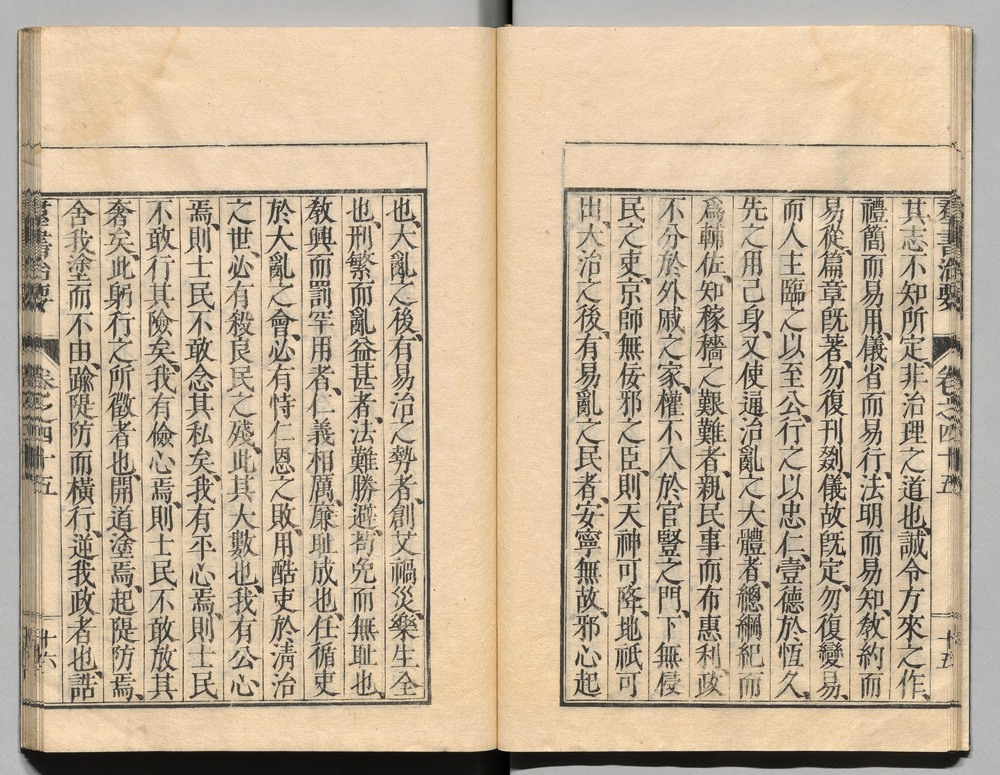 群書治要
卷之四十五
十五
其志不知所定、非治理之道也、誠令方來之作、
禮簡而易用、儀省而易行、法明而易知、教約而
易從、篇章既著、勿復刊剟、儀故既定、勿復變易、
而人主臨之以至公、行之以忠仁、壹德於恆久、
先之用己身、又使通治亂之大體者、總綱紀而
爲輔佐、知稼穡之艱難者、親民事而布惠利、政
不分於外戚之家、權不入於宦豎之門、下無侵
民之吏、京師無佞邪之臣、則天神可降、地祇可
出、大治之後、有易亂之民者、安寧無故、邪心起
也、大亂之後、有易治之勢者、創艾禍災、樂生全
也、刑繁而亂益甚者、法難勝避、苟免而無耻也、
教興而罰罕用者、仁義相厲、廉耻成也、任循吏
於大亂之會、必有恃仁恩之敗、用酷吏於清治
之世、必有殺良民之殘、此其大數也、我有公心
焉、則士民不敢念其私矣、我有平心焉、則士民
不敢行其險矣、我有儉心焉、則士民不敢放其
奢矣、此躬行之所徵者也、開道塗焉、起隄防焉、
舍我塗而不由、踰隄防而橫行、逆我政者也、誥
群書治要
卷之四十五
十六